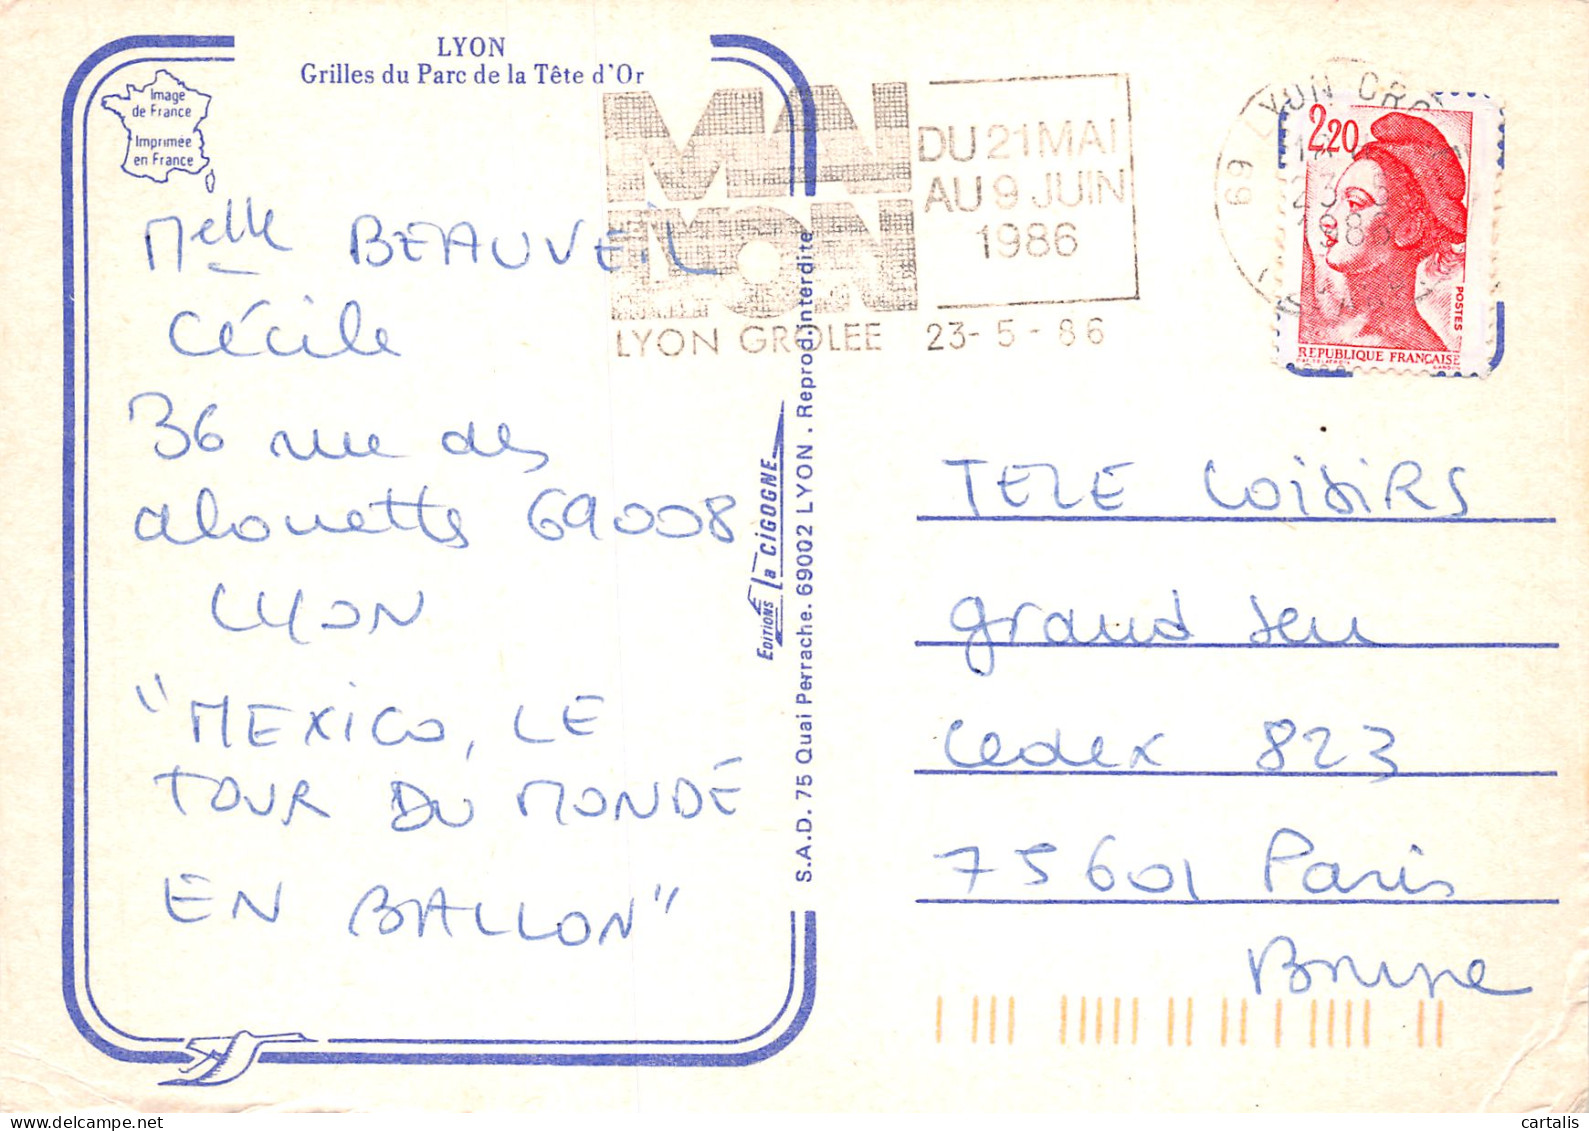 LYON
Grilles du Parc de la Tête d'Or
Image
de France
Imprimée
en France
Melle BEAUVEIL
Cécile
36 rue des
alouettes 69008
LYON
"MEXICO, LE
TOUR DU MONDE
EN BALLON"
DU 21 MAI
AU 9 JUIN
1986
LYON GROLEE 23-5-86
EDITIONS La CIGOGNE
S.A.D. 75 Quai Perrache. 69002 LYON . Reprod. interdite
69 LYON
1986
2,20
POSTES
REPUBLIQUE FRANÇAISE
TELE LOiSiRS
grand Jeu
Cedex 823
75601 Paris
Brune
cartalis